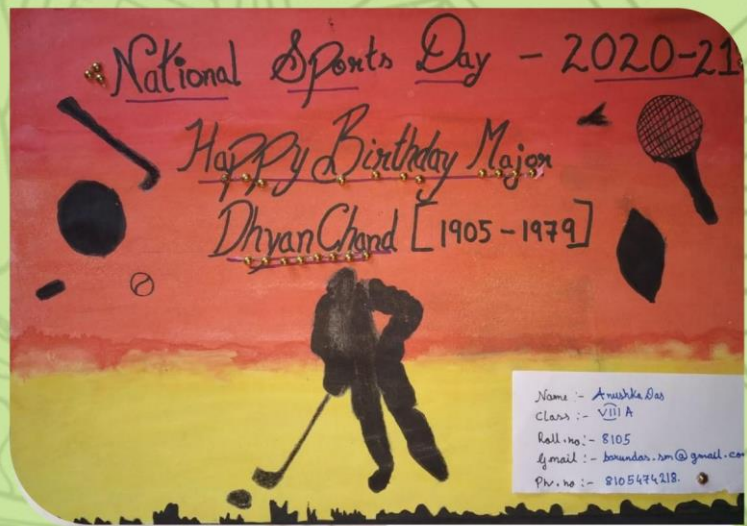 National Sports Day - 2020-21
Happy Birthday Major
Dhyan Chand [1905-1979]
Name :- Anushka Das
Class :- VIII A
Roll.no:- 8105
Gmail :- barundas.sm@gmail.com
Ph. no :- 8105474218.